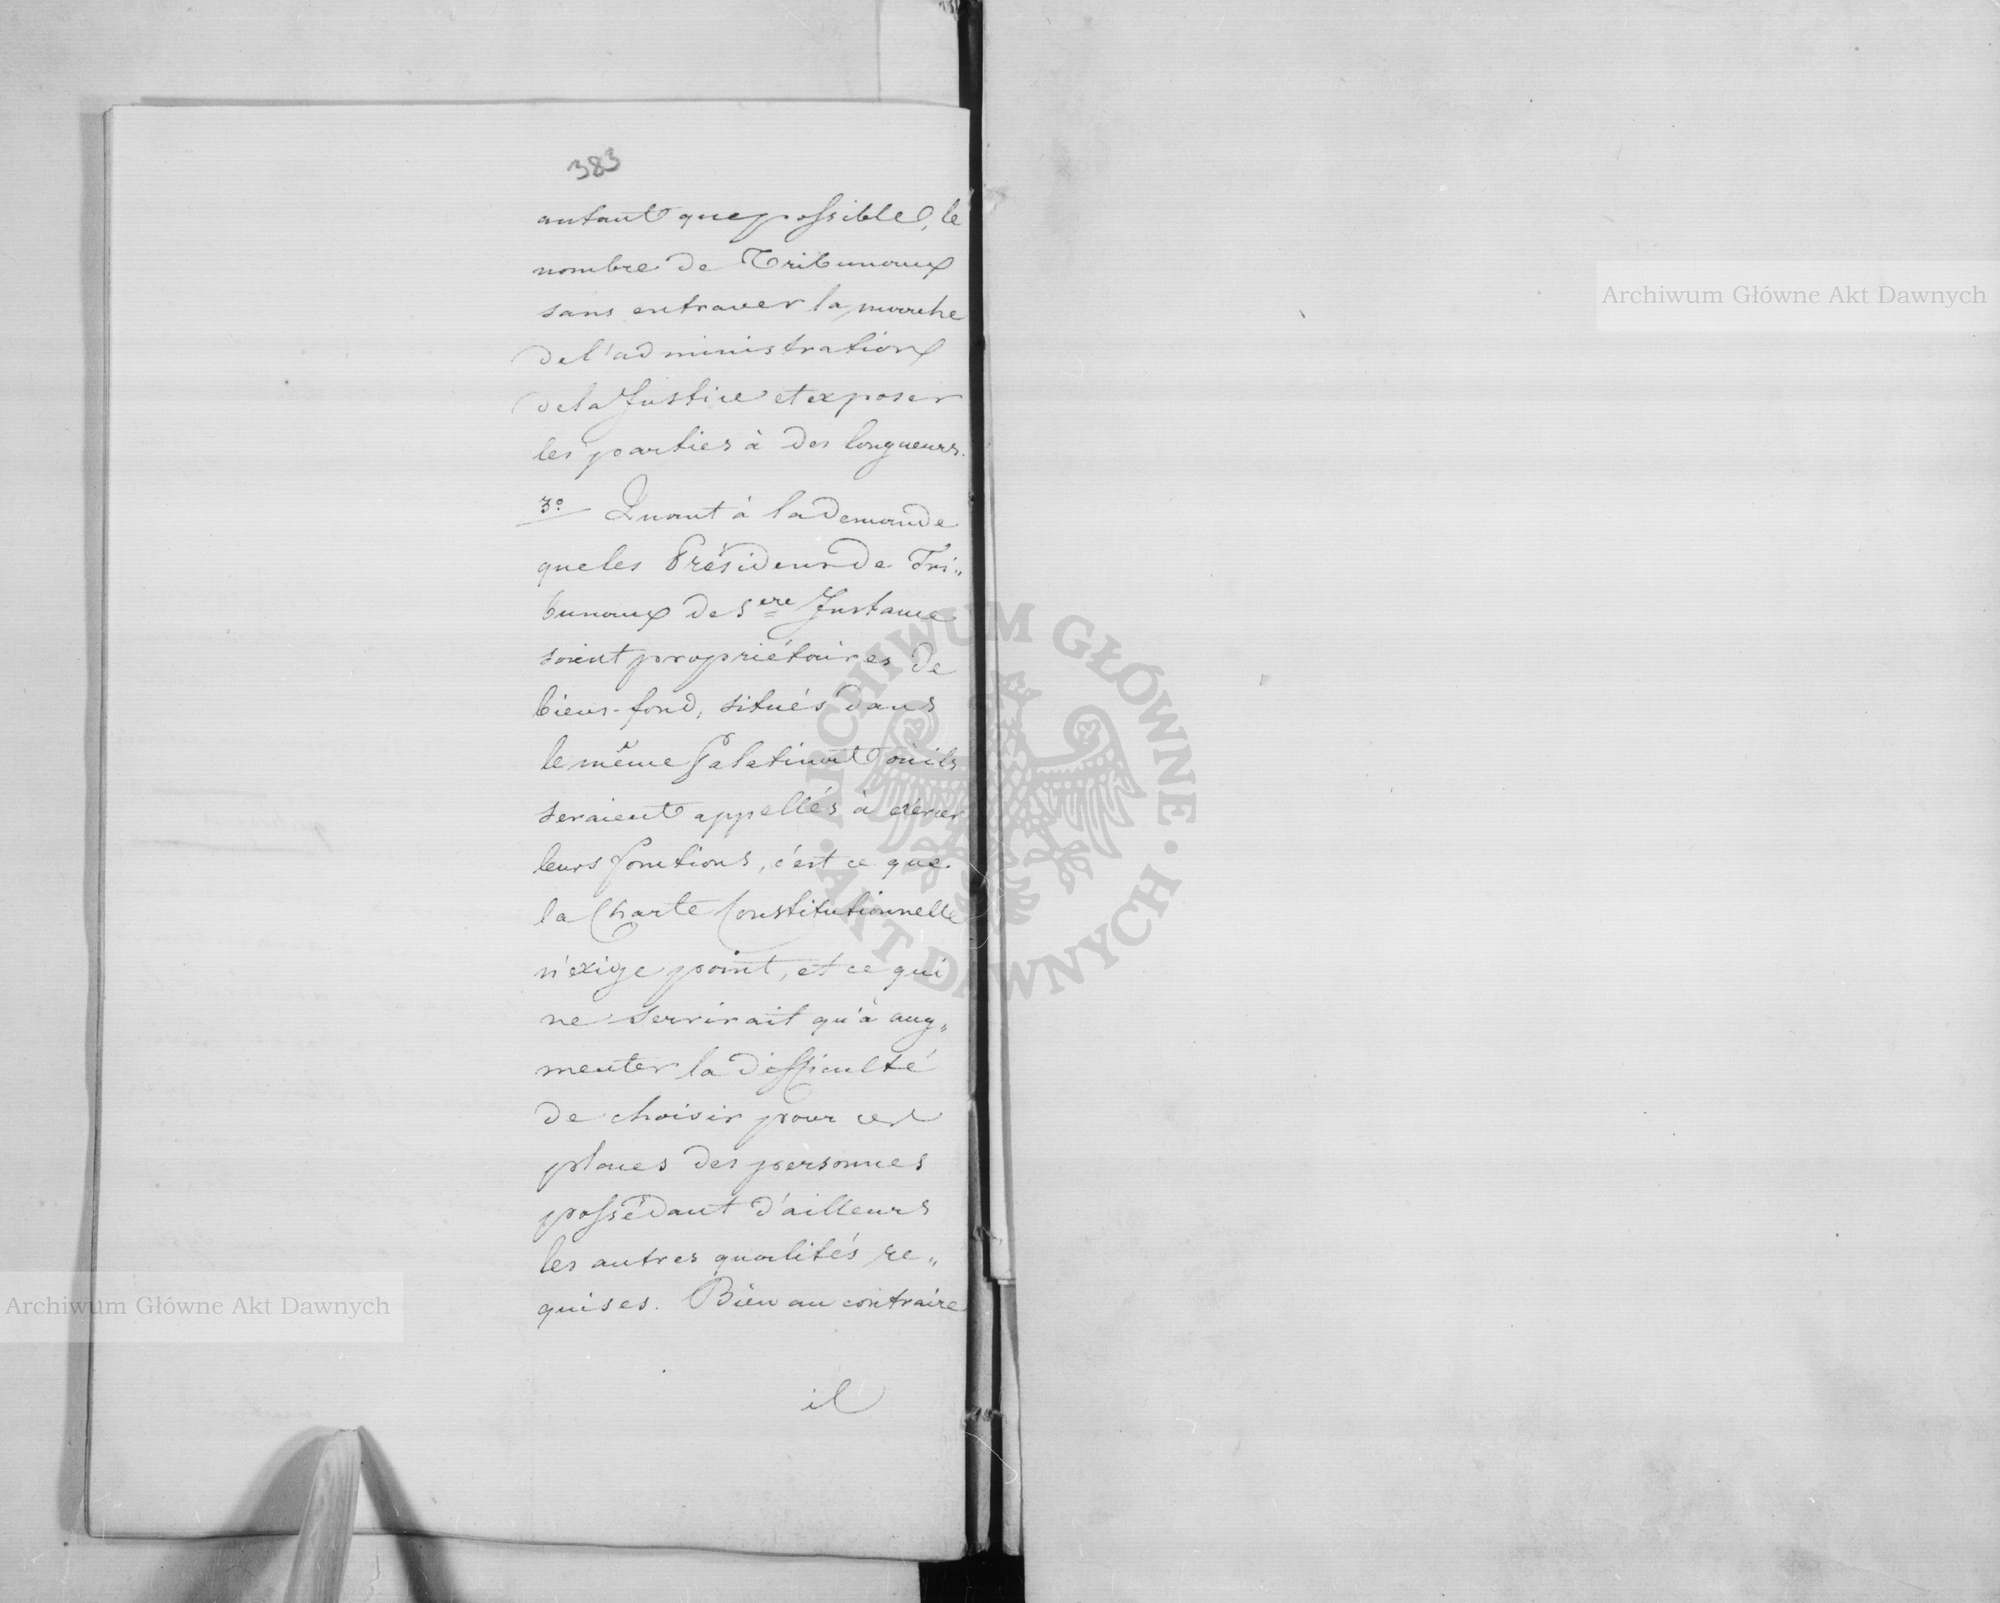 383
autant que possible, le
nombre de Tribunaux
sans entraver la marche
de l'administration
de la Justice et exposer
les parties à des longueurs.
3º Quant à la demande
que les Présidens de Tri„
bunaux de 1ere Instance
soient propriétaires de
biens-fond, situés dans
le même Palatinat où ils
seraient appellés à exercer
leurs fonctions, c'est ce que
la Charte Constitutionnelle
n'exige point, et ce qui
ne servirait qu'à aug„
menter la difficulté
de choisir pour ces
places des personnes
possédant d'ailleurs
les autres qualités re„
quises. Bien au contraire
il
Archiwum Główne Akt Dawnych
Archiwum Główne Akt Dawnych
ARCHIWUM GŁÓWNE · AKT DAWNYCH ·